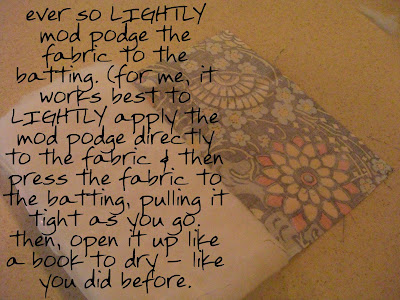 ever so LIGHTLY
mod podge the
fabric to the
batting. (for me, it
works best to
LIGHTLY apply the
mod podge directly
to the fabric & then
press the fabric to
the batting, pulling it
tight as you go.
then, open it up like
a book to dry - like
you did before.